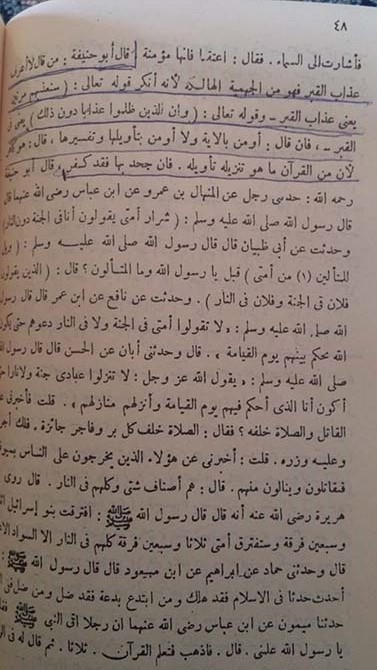 ٤٨
فأشارت الى السماء . فقال : اعتقها فانها مؤمنة قال أبو حنيفة : من قال لا أعرف
عذاب القبر فهو من الجهمية الهالكة لأنه أنكر قوله تعالى : ( سنعذبهم مرتين
يعنى عذاب القبر ـ وقوله تعالى : ( وان للذين ظلموا عذابا دون ذلك ) يعنى فى
القبر ـ ، فان قال : أومن بالاية ولا أومن بتأويلها وتفسيرها ، قال : هو كافر
لأن من القرآن ما هو تنزيله تأويله . فان جحد بها فقد كفر . قال أبو حنيفة
رحمه الله : حدثنى رجل عن المنهال بن عمرو عن ابن عباس رضى الله عنهما قال
قال رسول الله صلى الله عليه وسلم : ( شرار أمتى يقولون أنا فى الجنة دون النار )
وحدثت عن أبى ظبيان قال قال رسول الله صلى الله عليه وسلم : ( ويل
للمتألين (١) من أمتى ) قيل يا رسول الله وما المتألون ؟ قال : ( الذين يقولون
فلان فى الجنة وفلان فى النار ) . وحدثت عن نافع عن ابن عمر قال قال رسول
الله صلى الله عليه وسلم : « لا تقولوا أمتى فى الجنة ولا فى النار دعوهم حتى يكون
الله يحكم بينهم يوم القيامة » . قال وحدثنى أبان عن الحسن قال قال رسول الله
صلى الله عليه وسلم : « يقول الله عز وجل : لا تنزلوا عبادى جنة ولا نارا حتى
أكون أنا الذى أحكم فيهم يوم القيامة وأنزلهم منازلهم » . قلت فأخبرنى عن
القاتل والصلاة خلفه ؟ فقال : الصلاة خلف كل بر وفاجر جائزة . فلك أجرك
وعليه وزره . قلت : أخبرنى عن هؤلاء الذين يخرجون على الناس بسيوفهم
فيقاتلون وينالون منهم . قال : هم أصناف شتى وكلهم فى النار . قال روى أبو
هريرة رضى الله عنه أنه قال قال رسول الله ﷺ : افترقت بنو إسرائيل اثنتين
وسبعين فرقة وستفترق أمتى ثلاثا وسبعين فرقة كلهم فى النار الا السواد الاعظم
قال وحدثنى حماد عن ابراهيم عن ابن مسعود قال قال رسول الله ﷺ : من
أحدث حدثا فى الاسلام فقد هلك ومن ابتدع بدعة فقد ضل ومن ضل فى النار
حدثنا ميمون عن ابن عباس رضى الله عنهما ان رجلا اتى النبى ﷺ فقال
يا رسول الله علمنى . قال . فاذهب فتعلم القرآن . ثلاثا . ثم قال له فى الرابعة